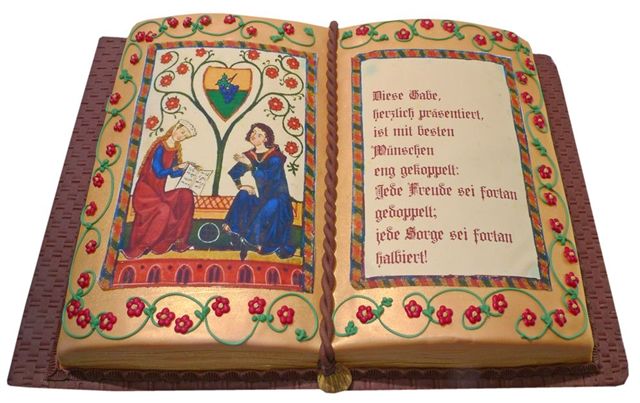 Diese Gabe,
herzlich präsentiert,
ist mit besten
Wünschen
eng gekoppelt:
Jede Freude sei fortan
gedoppelt;
jede Sorge sei fortan
halbiert!